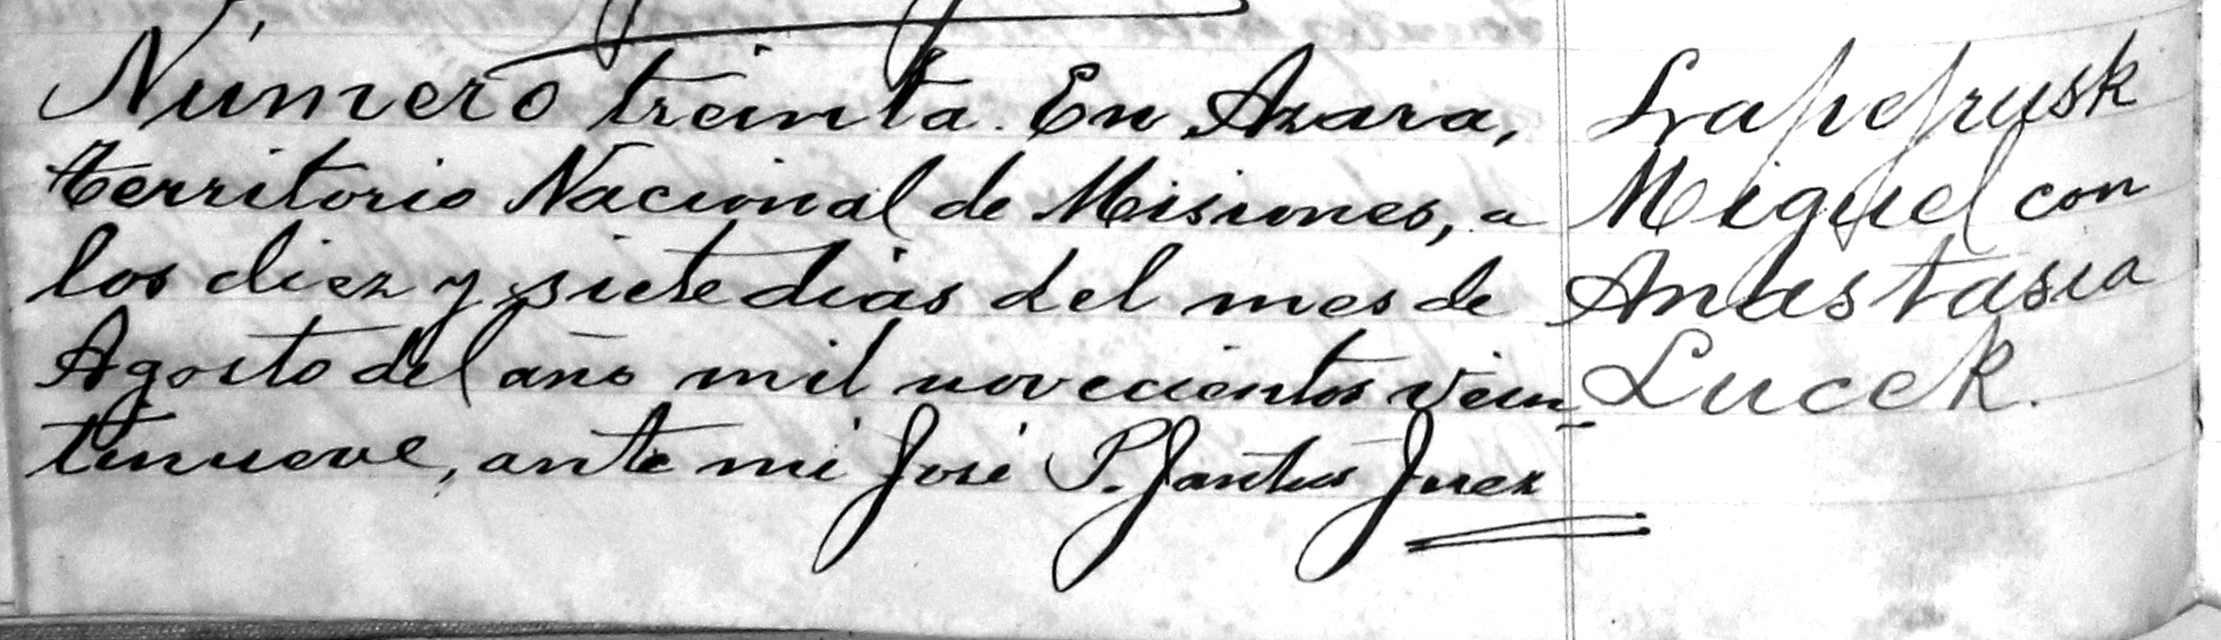 Número treinta. En Azara,
territorio Nacional de Misiones, a
los diez y siete dias del mes de
Agosto del año mil novecientos vein-
tinueve, ante mi José P. Santos Juez
Miguel con
Anastasia
Lucek.